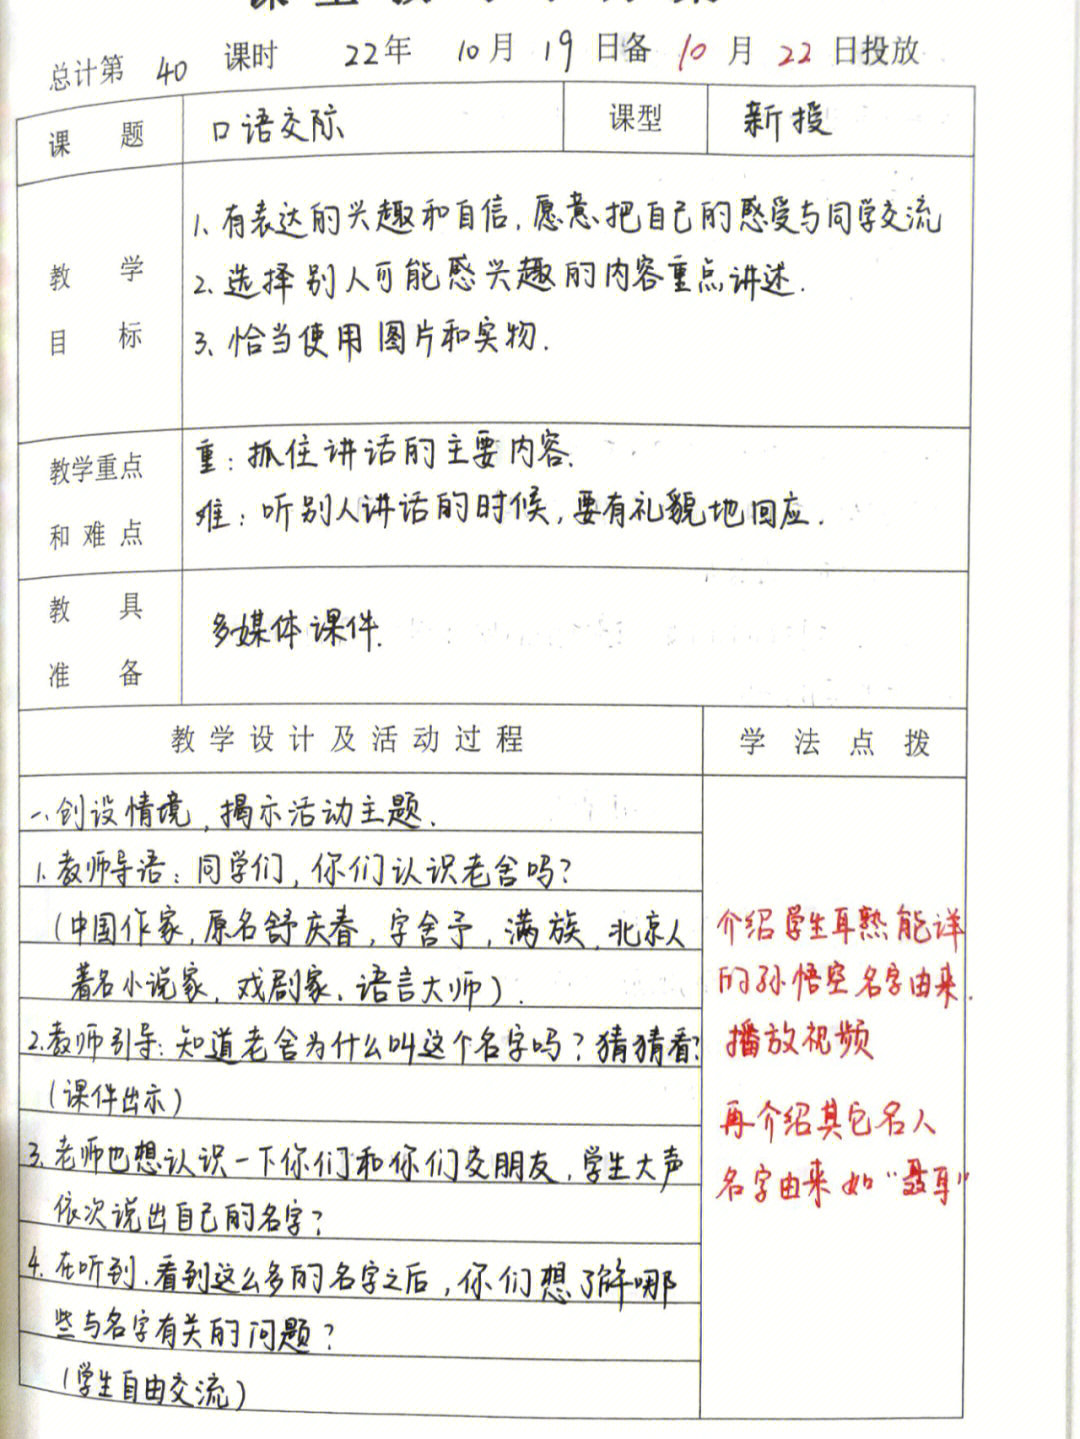 总计第 40 课时 22年 10月 19日备 10月 22日投放
课题 口语交际 课型 新授
教学目标
1. 有表达的兴趣和自信,愿意把自己的感受与同学交流
2. 选择别人可能感兴趣的内容重点讲述.
3、恰当使用图片和实物.
教学重点和难点
重:抓住讲话的主要内容.
难:听别人讲话的时候,要有礼貌地回应.
教具准备
多媒体课件.
教学设计及活动过程 学法点拨
一、创设情境,揭示活动主题.
1. 教师导语:同学们,你们认识老舍吗?
(中国作家,原名舒庆春,字舍予,满族,北京人
著名小说家,戏剧家、语言大师).
2.教师引导:知道老舍为什么叫这个名字吗?猜猜看?
(课件出示)
3.老师也想认识一下你们和你们交朋友,学生大声
依次说出自己的名字?
4.在听到、看到这么多的名字之后,你们想了解哪
些与名字有关的问题?
(学生自由交流)
介绍学生耳熟能详
的孙悟空名字由来.
播放视频
再介绍其它名人
名字由来如“聂耳”